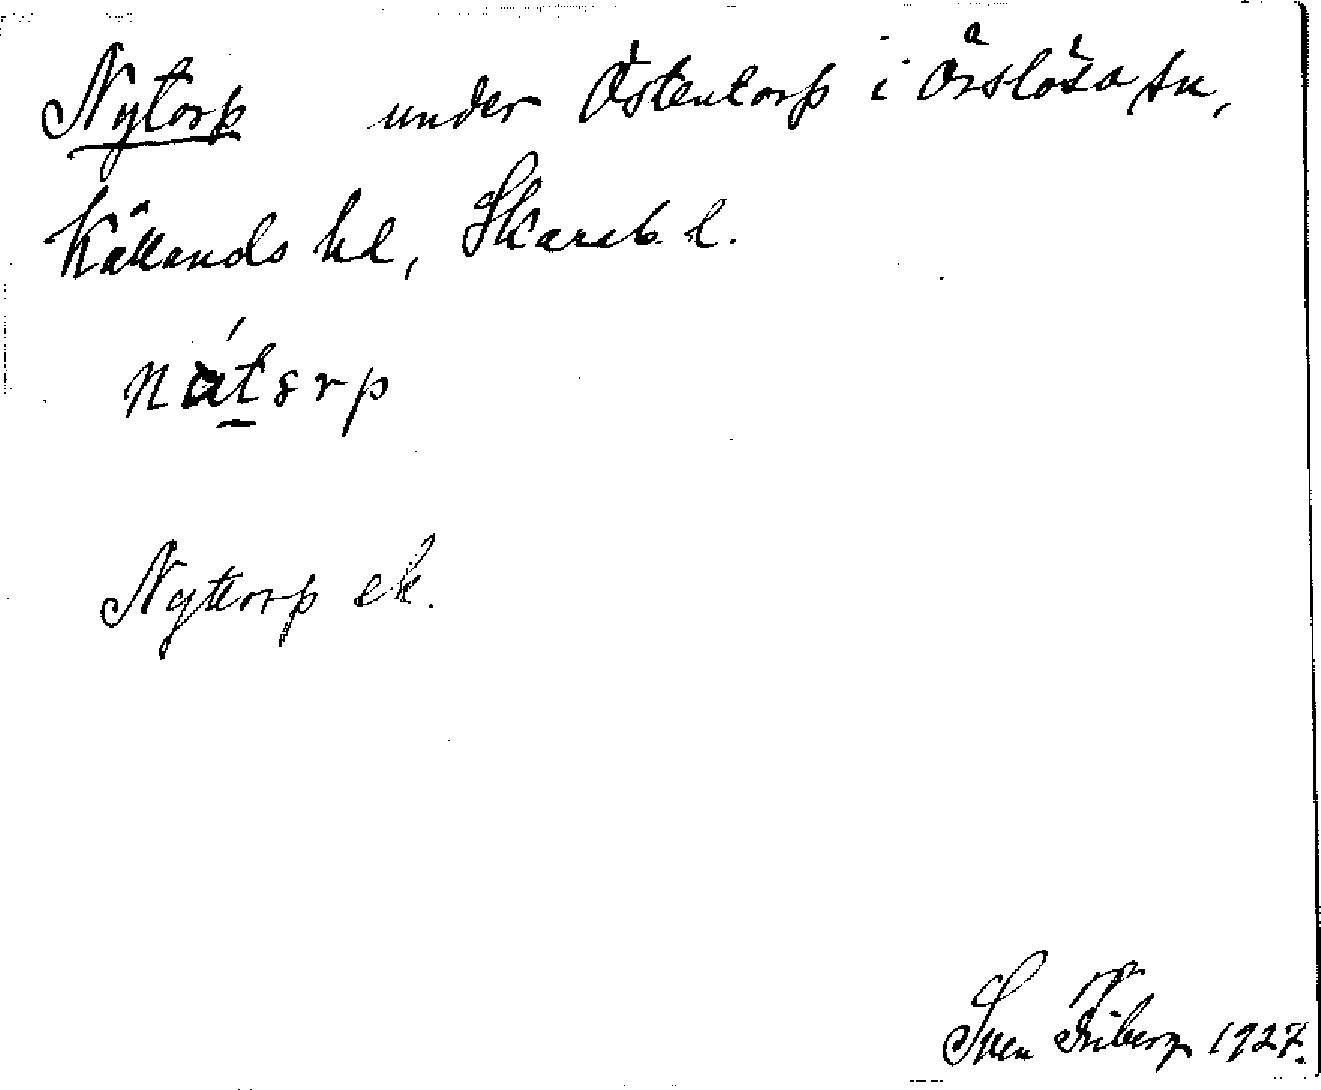 Nytorp under Östentorp i Örslösa sn,
Kållands hd, Skarab. l.
Nyttorp ek.
Sven Friberg 1927.